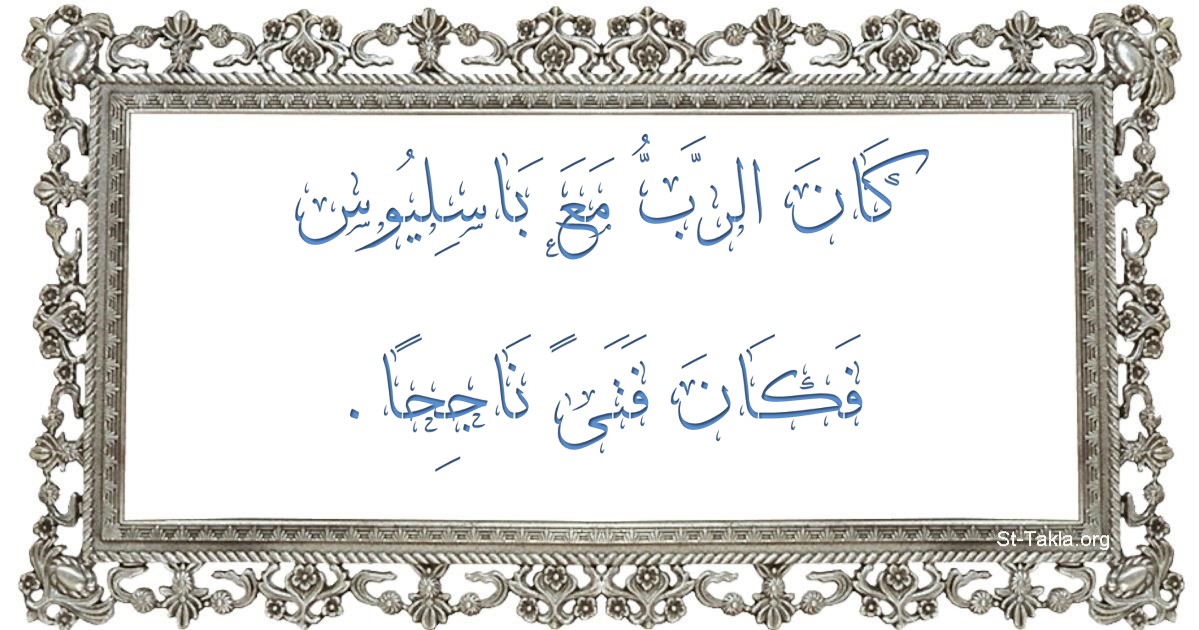 كَانَ الرَّبُّ مَعَ بَاسِلِيُوس
فَكَانَ فَتَىً نَاجِحًا .
St-Takla.org